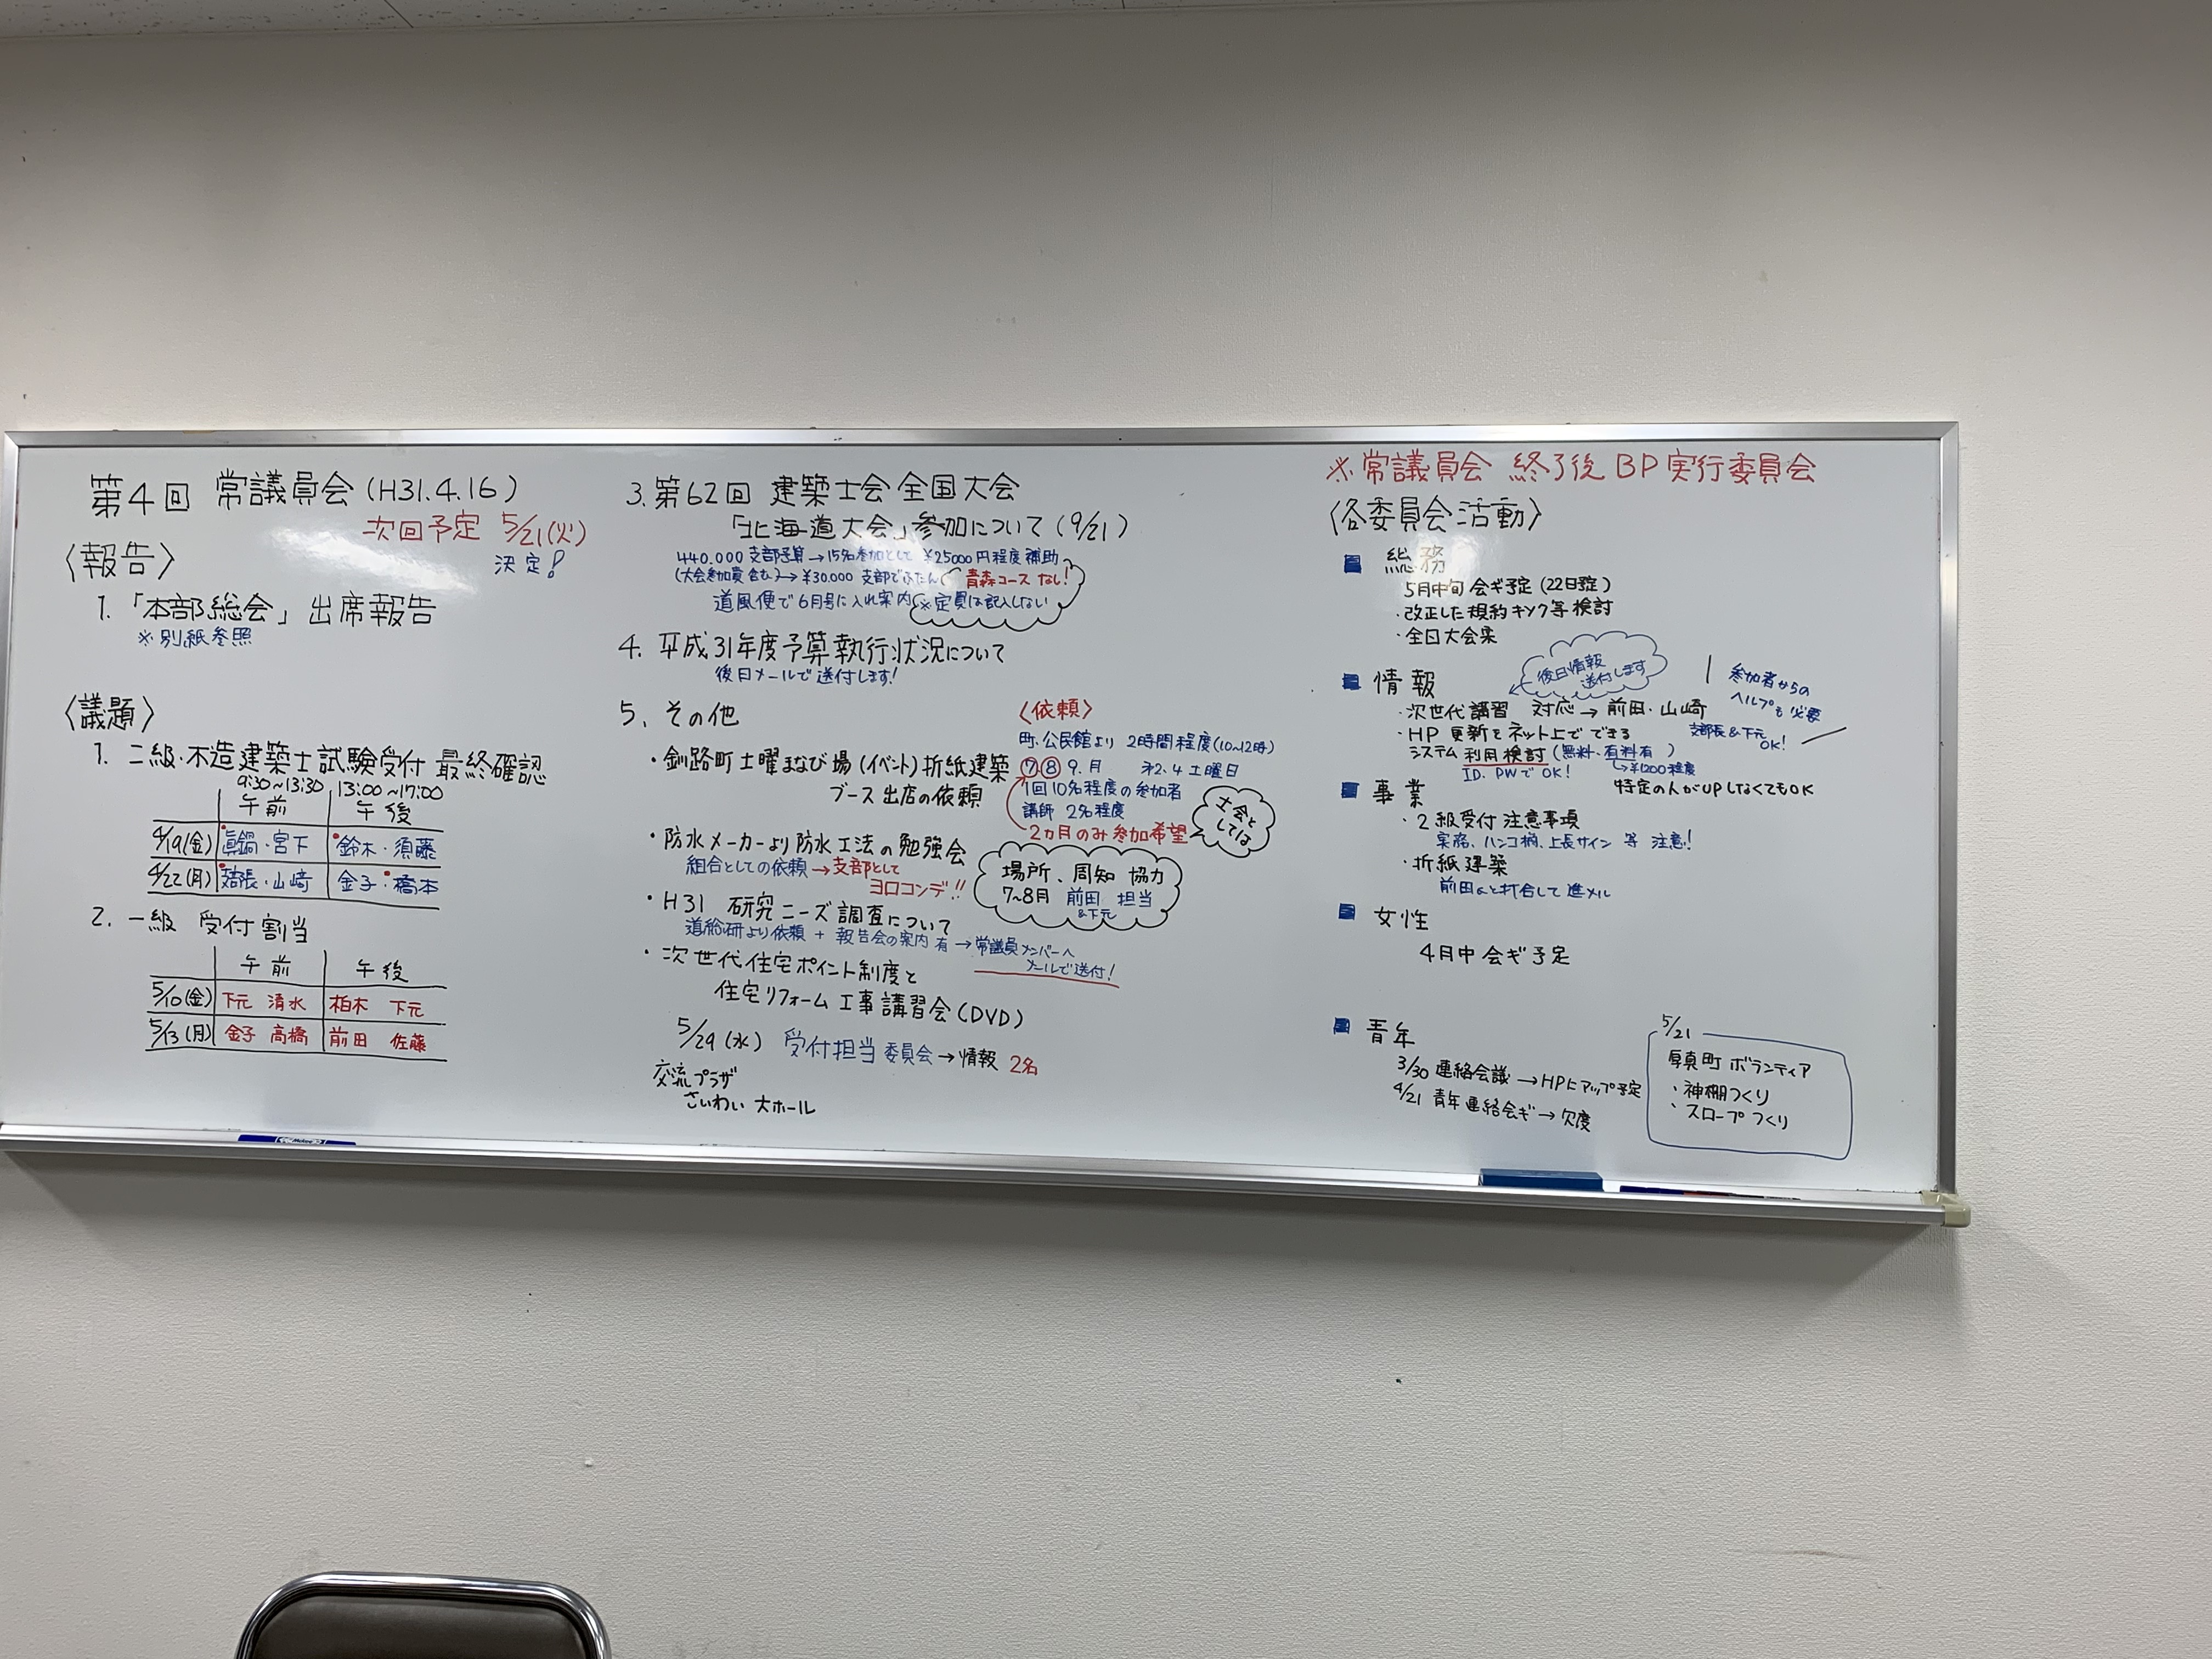 第4回 常議員会(H31.4.16)
次回予定 5/21(火)
決定!
〈報告〉
1.「本部総会」出席報告
※別紙参照
〈議題〉
1. 二級・木造建築士試験受付 最終確認
9:30~13:30 13:00~17:00
午前 午後
4/19(金) 眞鍋・宮下 鈴木・須藤
4/22(月) 支部長・山崎 金子・橋本
2. 一級 受付割当
午前 午後
5/10(金) 下元 清水 柏木 下元
5/13(月) 金子 高橋 前田 佐藤
3.第62回 建築士会全国大会
「北海道大会」参加について(9/21)
440.000支部予算→15名参加として ¥25000円程度補助
(大会参加費含む)→¥30.000 支部でふたん
青森コース なし!
道風便で6月号に入れ案内
※定員は記入しない
4. 平成31年度予算執行状況について
後日メールで送付します!
5. その他
・釧路町土曜まなび場(イベント)折紙建築
ブース出店の依頼
〈依頼〉
町.公民館より 2時間程度(10~12時)
⑦⑧9.月 才2.4土曜日
1回10名程度の参加者
講師 2名程度
2ヵ月のみ参加希望
士会と
しては
・防水メーカーより防水工法の勉強会
組合としての依頼→支部として
ヨロコンデ!!
場所、周知 協力
7~8月 前田 担当
&下元
・H31 研究ニーズ調査について
道総研より依頼 + 報告会の案内 有→常議員メンバーへ
メールで送付!
・次世代住宅ポイント制度と
住宅リフォーム工事講習会(DVD)
5/29(水) 受付担当委員会→情報 2名
交流プラザ
さいわい 大ホール
※常議員会 終了後BP実行委員会
〈各委員会活動〉
■ 総務
5月中旬 会ギ予定(22日予定)
・改正した規約キソク等検討
・全日大会案
■ 情報
後日情報
送付します
・次世代講習 対応→前田・山崎
参加者からの
ヘルプも必要
・HP更新をネット上でできる
支部長&下元
OK!
システム利用検討(無料・有料有)
→¥1200程度
ID.PWでOK!
特定の人がUPしなくてもOK
■ 事業
・2級受付 注意事項
実務、ハンコ柄、上長サイン 等 注意!
・折紙建築
前田と打合して進メル
■ 女性
4月中 会ギ予定
■ 青年
3/30 連絡会議→HPにアップ予定
4/21 青年連絡会ギ→欠席
5/21
厚真町ボランティア
・神棚つくり
・スロープつくり